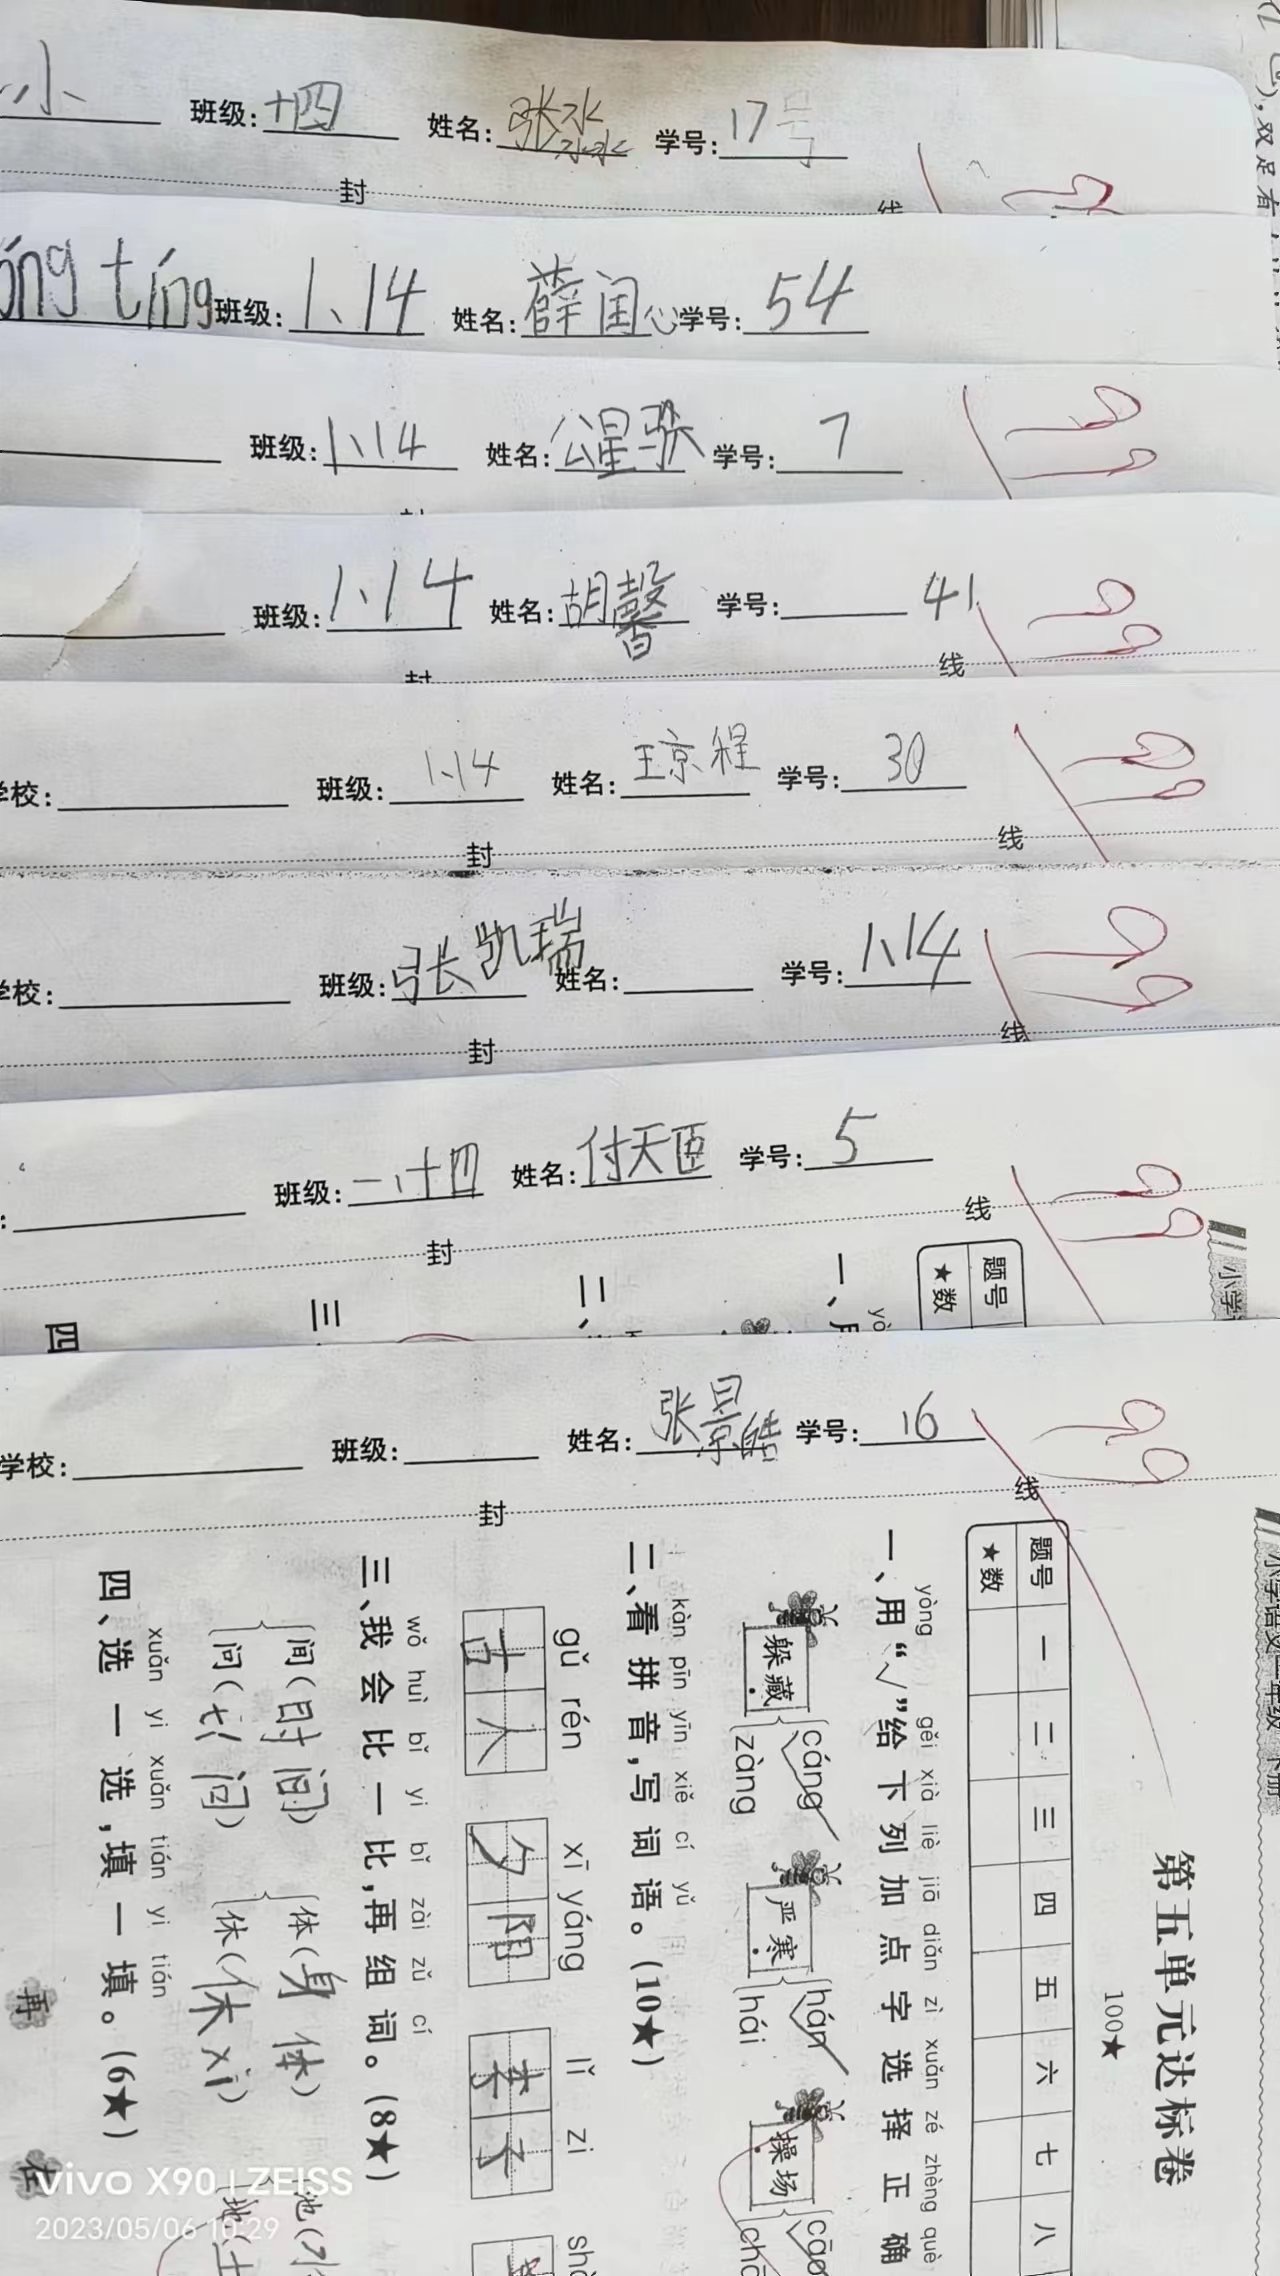 小 班级:十四 姓名:张冰冰 学号:17号
封 线
班级:1、14 姓名:薛闰心 学号:54
班级:1、14 姓名: 学号:7
99
班级:1、14 姓名:胡馨 学号: 41
99
封 线
学校: 班级:1、14 姓名:王京程 学号:30
99
封 线
学校: 班级:张凯瑞 姓名: 学号:1、14
99
封 线
班级:一、十四 姓名:付天 学号:5
99
封 线
题号
★数
一、用
yòng
二、
三、
四
小学
学校: 班级: 姓名:张景皓 学号:16
99
封 线
第五单元达标卷
100★
题号 一 二 三 四 五 六 七 八
★数
yòng gěi xià liè jiā diǎn zì xuǎn zé zhèng què
一、用“√”给下列加点字选择正确
躲藏 cáng zàng 严寒 hán hái 操场 cāo
kàn pīn yīn xiě cí yǔ
二、看拼音,写词语。(10★)
gǔ rén xī yáng lǐ zi
古人 夕阳 李子
wǒ huì bǐ yi bǐ zài zǔ cí
三、我会比一比,再组词。(8★)
间(时间) 体(身体) 池(
问( 问) 休(休xi) 地(土
xuǎn yi xuǎn tián yi tián
四、选一选,填一填。(6★)
再 左
vivo X90 | ZEISS
2023/05/06 10:29